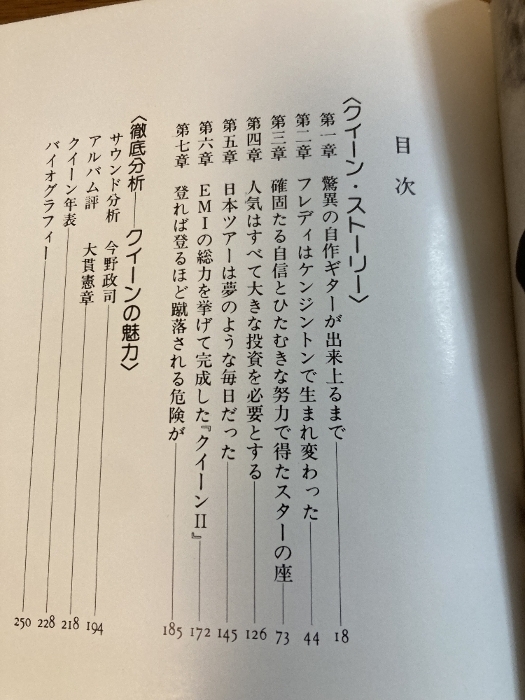 目次
〈クイーン・ストーリー〉
第一章 驚異の自作ギターが出来上るまで――18
第二章 フレディはケンジントンで生まれ変わった――44
第三章 確固たる自信とひたむきな努力で得たスターの座――73
第四章 人気はすべて大きな投資を必要とする――126
第五章 日本ツアーは夢のような毎日だった――145
第六章 EMIの総力を挙げて完成した『クイーンII』――172
第七章 登れば登るほど蹴落される危険が――185
〈徹底分析――クイーンの魅力〉
サウンド分析 今野政司
アルバム評 大貫憲章――194
クイーン年表――218
バイオグラフィー――228
250